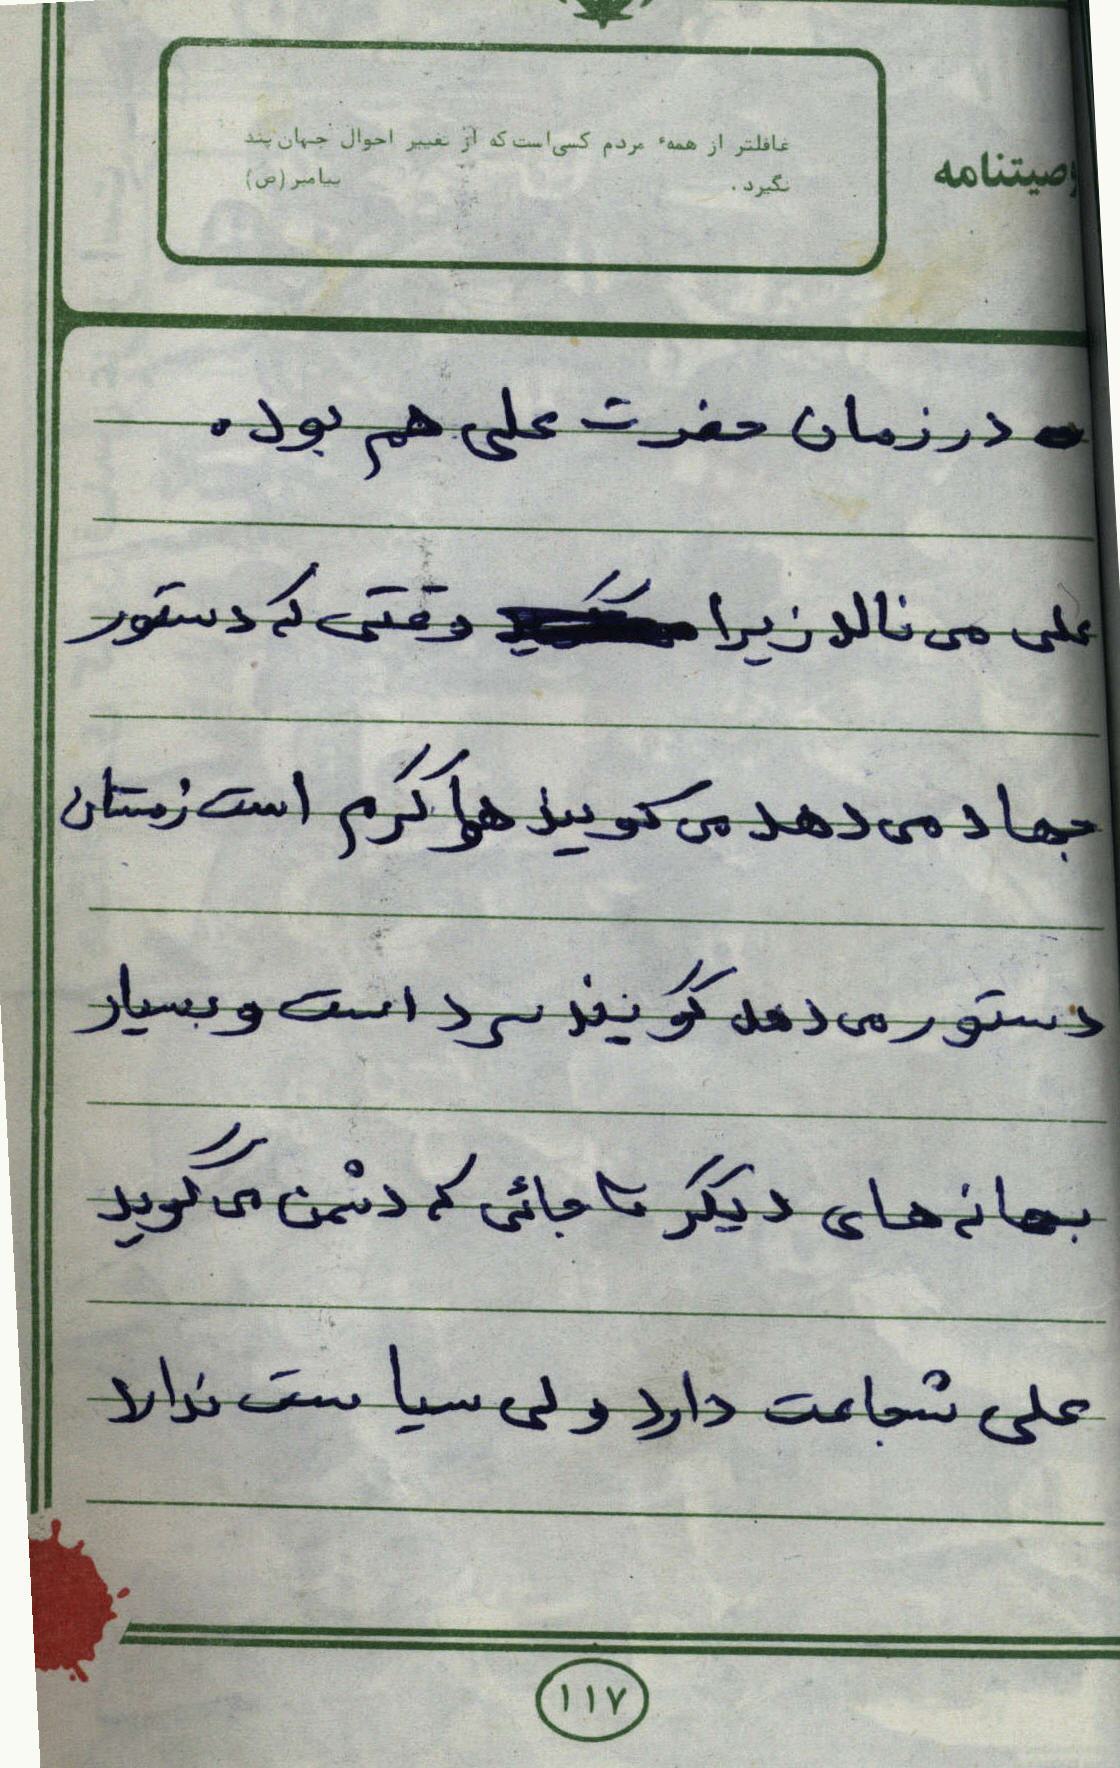 وصیتنامه
غافلتر از همهٔ مردم کسی‌است که از تغییر احوال جهان پند
نگیرد. پیامبر (ص)
در زمان حضرت علی هم بوده
علی می نالد زیرا وقتی که دستور
جهاد می دهد می گویند هوا گرم است زمستان
دستور می دهد گویند سرد است و بسیار
بهانه های دیگر تا جائی که دشمن می گوید
علی شجاعت دارد ولی سیاست ندارد
۱۱۷